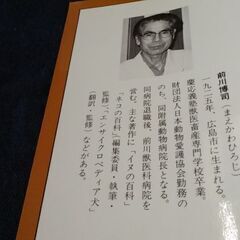 前川博司（まえかわひろし）
一九二五年、広島市に生まれる。
慶応義塾獣医畜産専門学校卒業。
財団法人日本動物愛護協会勤務の
のち、同附属動物病院長となる。
同病院退職後、前川獣医科病院を
営む。主な著作に「イヌの百科」
「ネコの百科」（編集委員・執筆・
監修）、「エンサイクロペディア犬」
（翻訳・監修）などがある。